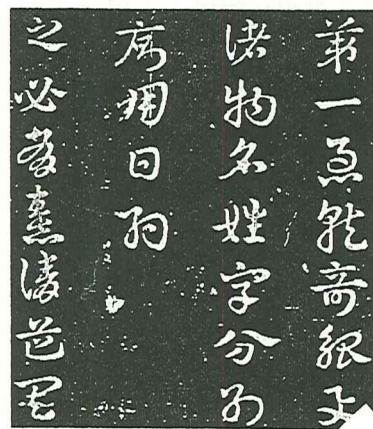 第一急就奇觚與
諸物名姓字分別
廁用日約
之必有憙請道其